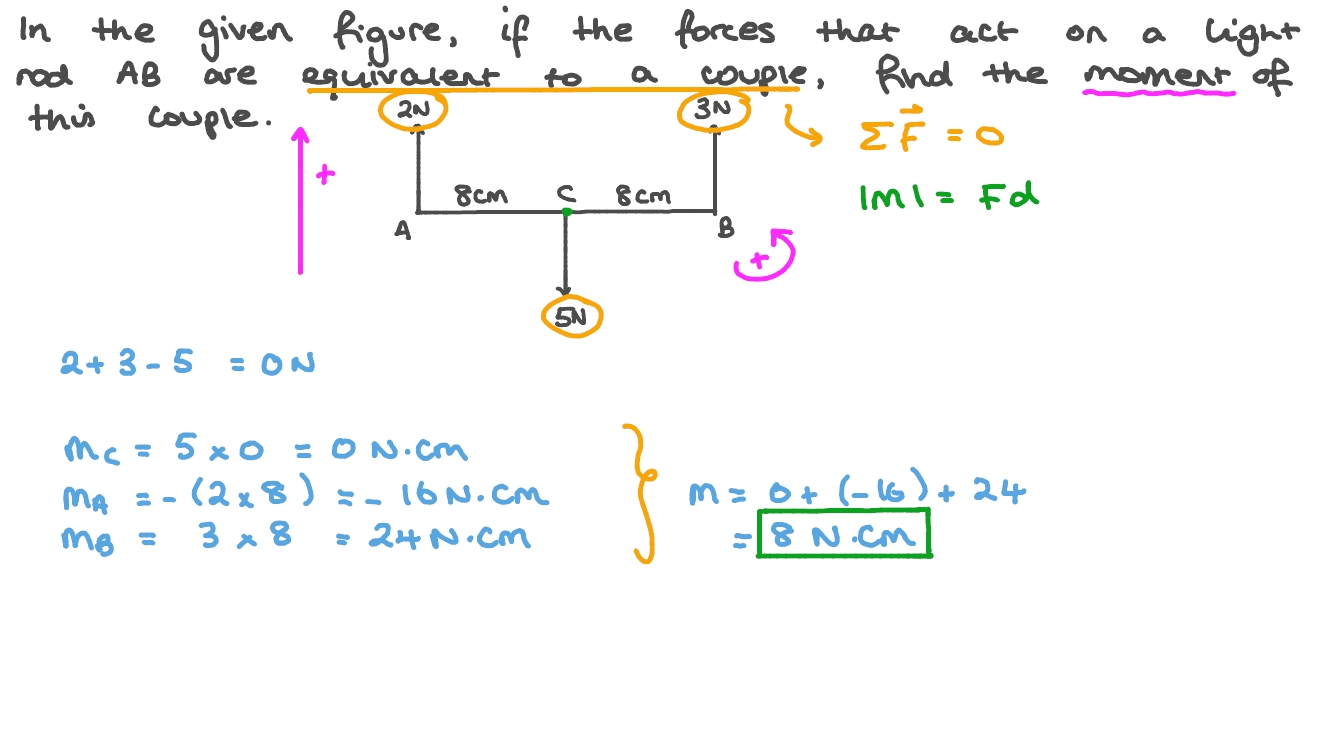 In the given figure, if the forces that act on a light
rod AB are equivalent to a couple, find the moment of
this couple.
2N
3N
ΣF⃗ = 0
+
8cm
C
8cm
|M| = Fd
A
B
+
5N
2+3-5 = 0N
Mc = 5×0 = 0 N.cm
MA = -(2×8) = -16N.cm
MB = 3×8 = 24N.cm
M = 0+(-16)+24
= 8 N.cm